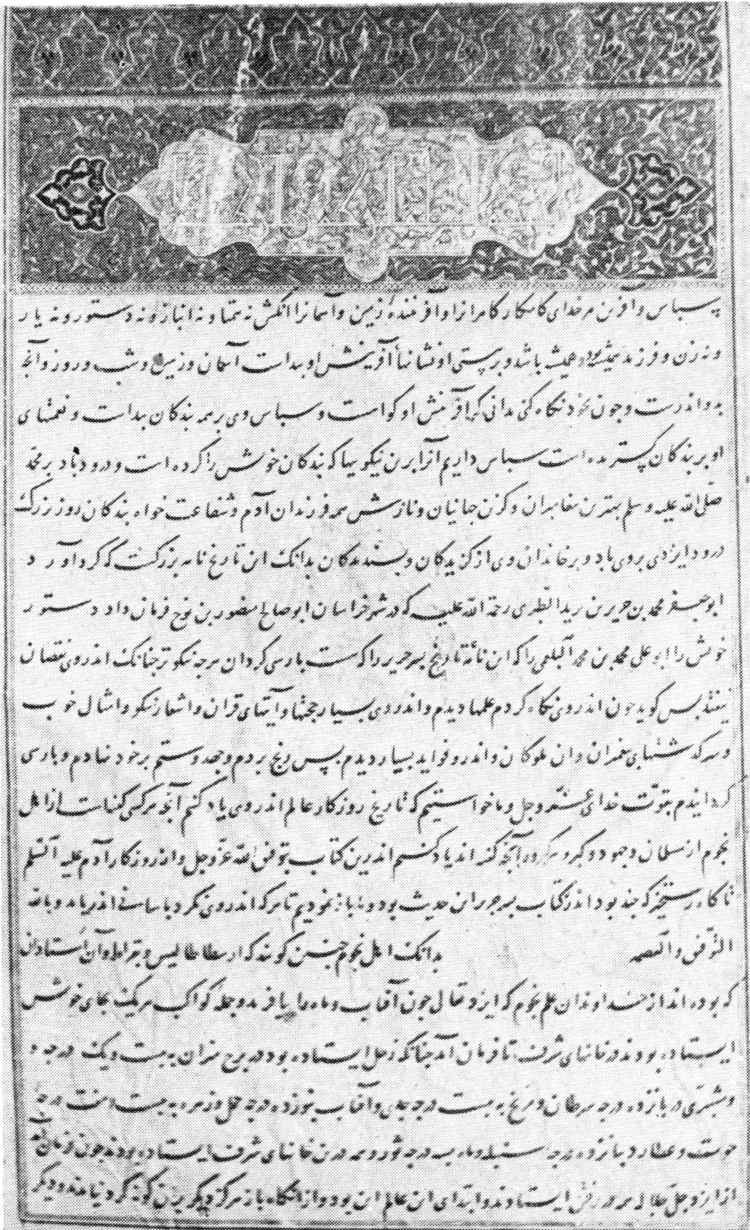 سپاس و آفرین مر خدای کامکار کامران و آفریننده زمین و آسمانرا آنکش نه همتا و نه انباز و نه دستور و نه یار
و نه زن و فرزند همیشه بوده همیشه باشد و بر هستی او نشانهاء آفرینش او بداست آسمان و زمین و شب و روز و آنچه
بدو اندرست و چون بخرد نگاه کنی بدانی که آفرینش او گواست و سپاس وی بر همه بندگان بداست و نعمتهای
او بر بندگان گسترده است سپاس داریم آنرا برین نیکویها که بندگان خویش را کرده است و درود باد بر محمد
صلی الله علیه و سلم بهترین پیغامبران و گزین جهانیان و نازش همه فرزندان آدم و شفاعت خواه بندگان روز بزرگ
درود ایزدی بروی باد و بر خاندان وی از گزیدگان و پسندیدگان بدانک این تاریخ نامه بزرگست که گرد آورد
ابو جعفر محمد بن جریر بن یزید الطبری رحمة الله علیه که ملک خراسان ابو صالح منصور بن نوح فرمان داد دستور
خویش را ابو علی محمد بن محمد البلعمی را که این نامه تاریخ پسر جریر را کست پارسی گردان هرچه نیکوتر چنانک اندر وی نقصان
نیفتد پس گوید چون اندر وی نگاه کردم علمها دیدم و اندر وی بسیار حجتها و آیتهای قرآن و اشعار نیکو و امثال خوب
و سرگذشتهای پیغمبران و آن ملوکان و اندرو فواید بسیار دیدم پس رنج بردم و جهد و ستم بر خود نهادم و پارسی
گردانیدم بقوت خدای عز و جل و ما خواستیم که تاریخ روزگار عالم اندر وی یاد کنیم آنچ هر کسی گفتست از اهل
نجوم از مسلمان و جهود و گبر و هر گروه آنچ گفته اند یاد کنیم اندرین کتاب بتوفیق الله عز و جل و از روزگار آدم علیه السلم
تا گاه رستخیز که چند بود اندر کتاب پسر جریر این حدیث بود و ما باز نمودیم تا هر که اندر وی نگرد باسانی اندر یابد و بالله
التوفیق والعصمه بدانک اهل نجوم چنین گویند که ارسطاطالیس و بقراط و آن استادان
که بوده اند از خداوندان علم نجوم که ایزد تعالی چون آفتاب و ماه را بیافرید و جمله کواکب هر یک بجای خویش
ایستاده بودند در خانهای شرف تا فرمان آمد چنانکه زحل ایستاده بود در برج میزان به بیست و یک درجه و
و مشتری در پانزده درجه سرطان و مریخ به بیست درجه جدی و آفتاب بنوزده درجه حمل و زهره به بیست و هفت درجه
حوت و عطارد بپانزده درجه سنبله و ماه بسه درجه ثور و همه درین خانهای شرف ایستاده بودند چون فرمان
از ایزد جل جلاله رفتن ایستادند و ابتدای این عالم این بود و از آنگاه باز هرگز دیگر بدین گونه گرد نیامدند و دیگر